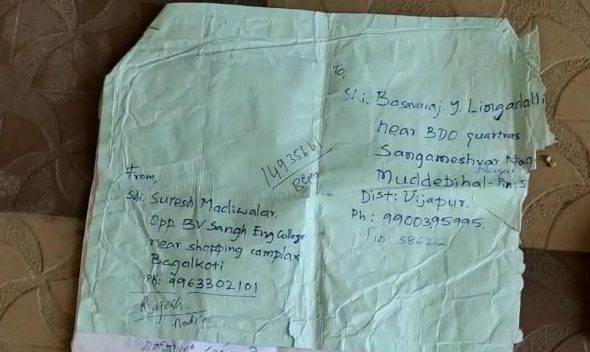 To,
Shi. Basavaraj y. Lingadalli
near BDO quartras
Sangameshvar Nag
Nagar
Muddebihal - Pin: 5
Dist: Vijapur.
Ph: 9900395995.
Pin: 586212
From,
Shi. Suresh Madiwalar.
Opp. BV Sangh Eng College
near shopping camplax
Bagalkoti
Ph: 9963302101
Rajesh